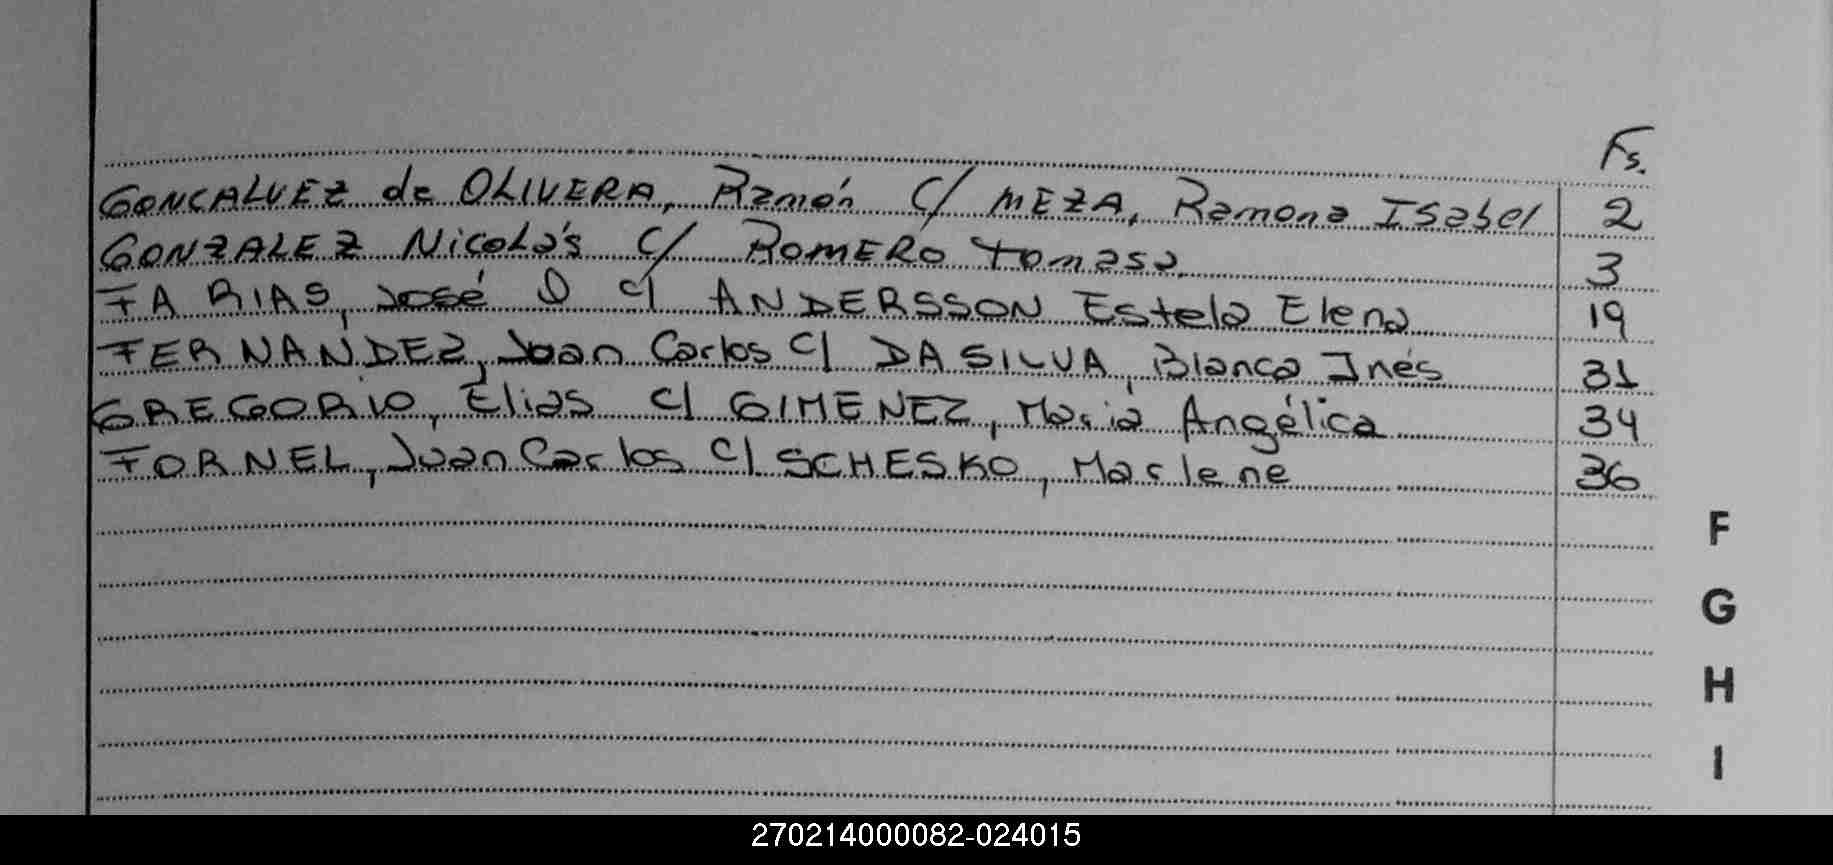 Fs.
GONCALVEZ de OLIVERA, Ramón C/ MEZA, Ramona Isabel 2
GONZALEZ Nicolás C/ ROMERO Tomasa 3
FARIAS, José O c/ ANDERSSON Estela Elena 19
FERNANDEZ, Juan Carlos C/ DA SILVA, Blanca Inés 31
GREGORIO, Elias c/ GIMENEZ, María Angélica 34
FORNEL, Juan Carlos C/ SCHESKO, Marlene 36
F
G
H
I
270214000082-024015